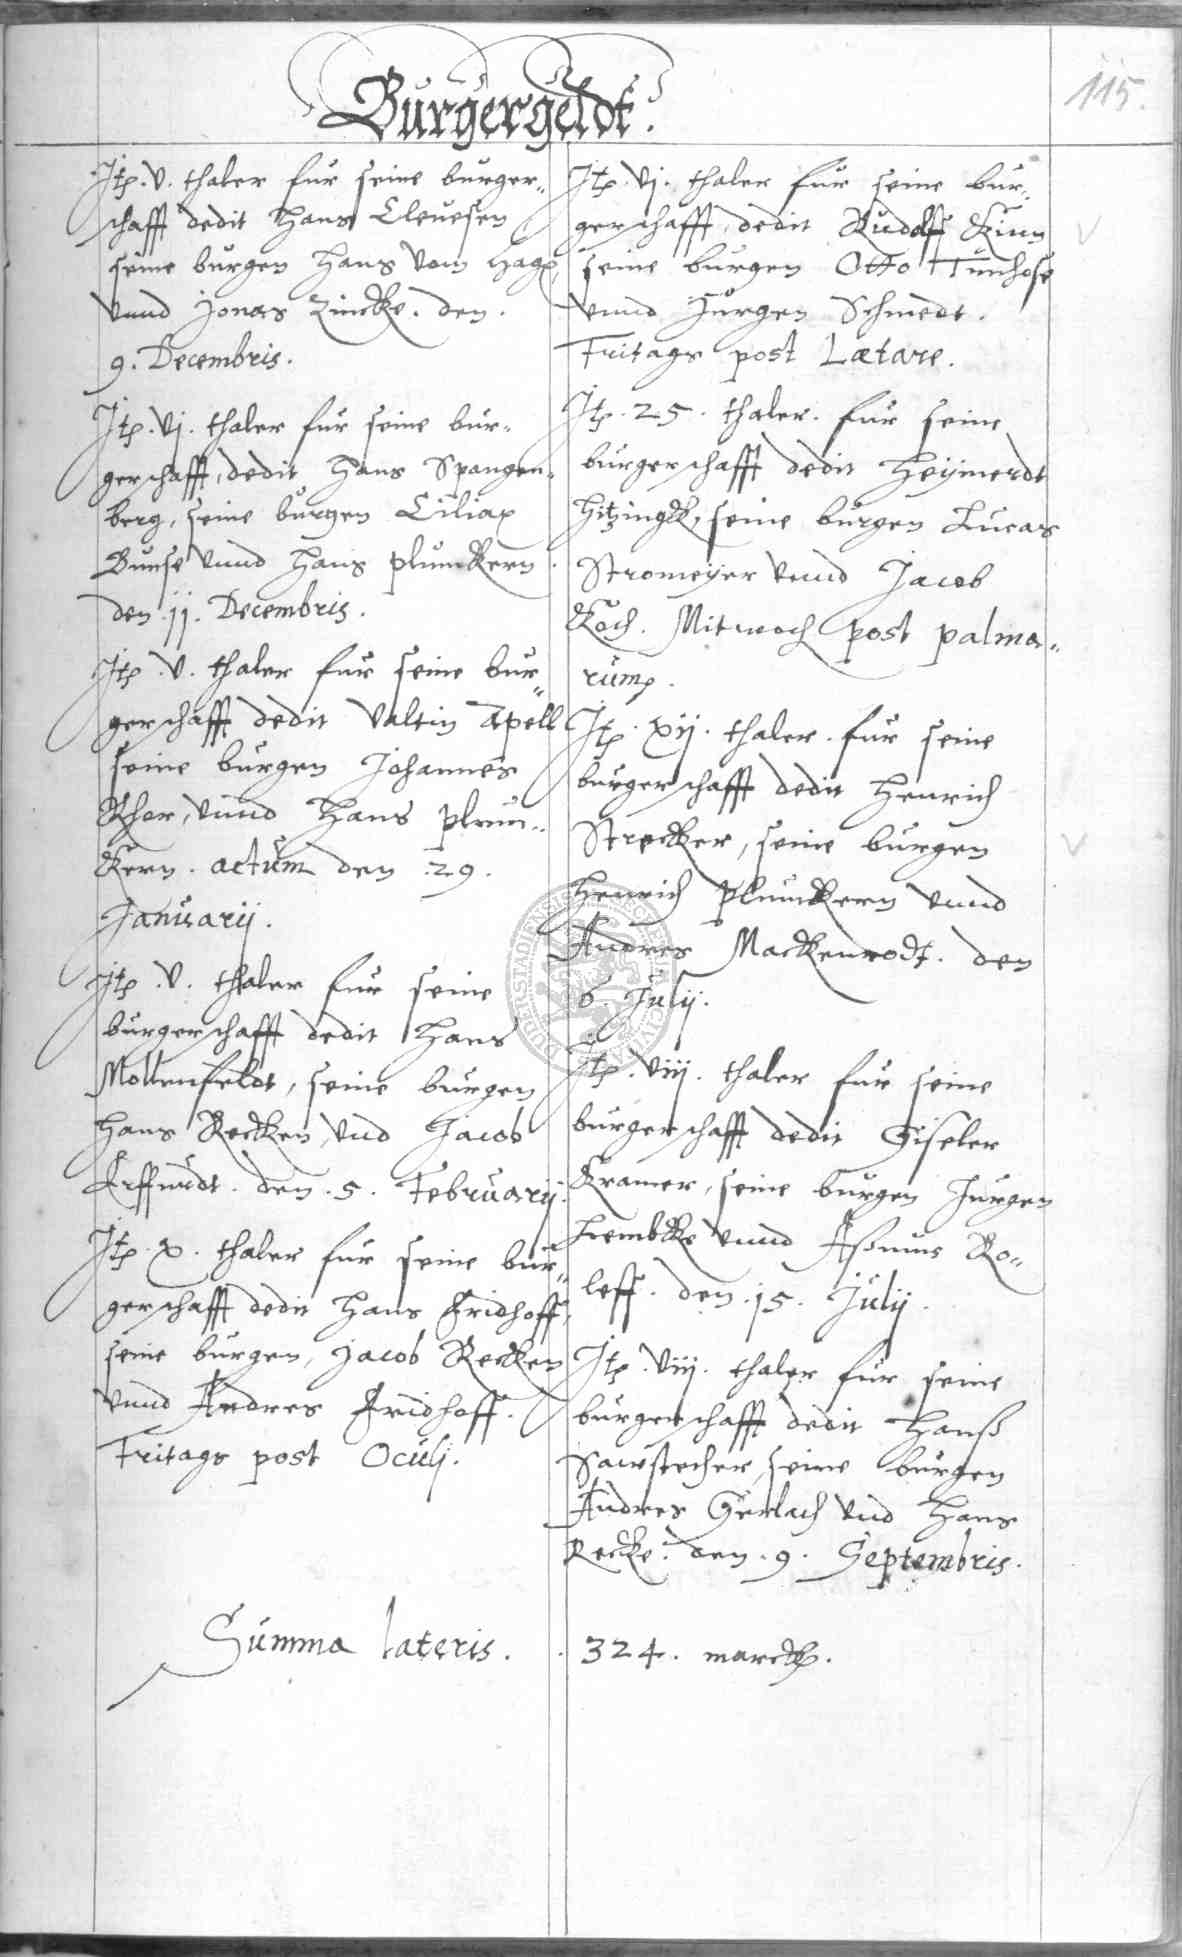 Burgergeldt.
115.
Itp. v. thaler fur seine burger„
schafft dedit Hans Cleuesen
seine burgen Hans vom Hage
vnnd Jonas Zincke. den.
9. Decembris.
Itp. vj. thaler fur seine bur„
gerschafft, dedit Hans Spangen„
berg, seine burgen Ciliax
Bunse vnnd Hans Plunckern
den .11. Decembris.
Itp. v. thaler fur seine bur„
gerschafft dedit Valtin Apell
seine burgen Johannes
vnnd Hans Plun„
ckern. actum den .29.
Januarij.
Itp. v. thaler fur seine
burgerschafft dedit Hans
Mollenfeldt, seine burgen
Hans Recken, vnd Jacob
Erffurdt. den .5. Februarij.
Itp. x. thaler fur seine bur„
gerschafft dedit Hans Fridhoff,
seine burgen, Jacob Recken
vnnd Andres Fridhoff.
Fritags post Oculj.
Itp. vj. thaler fur seine bur„
gerschafft, dedit Rudolff
seine burgen Otto Tunhose
vnnd Jurgen Schmedt.
Fritags post Lætare.
Itp. 25. thaler. fur seine
burgerschafft dedit Heijnerdt
Hitzingk, seine burgen Lucas
Stromeyer vnnd Jacob
Koch. Mitwoch post palma„
rump.
Itp. xij. thaler. fur seine
burgerschafft dedit Henrich
Strecker, seine burgen
Henrich Plunckern vnnd
Andres Mackenrodt. den
6. Julij.
Itp. viij. thaler fur seine
burgerschafft dedit Giseler
Kramer, seine burgen Jurgen
Lembke vnnd Aßmus Ro„
leff. den .15. Julij.
Itp. viij. thaler fur seine
burgerschafft dedit Hanß
Sawstecher, seine burgen
Andres Gerlach vnd Hans
Recke. den .9. Septembris.
Summa lateris. . 324. marck.